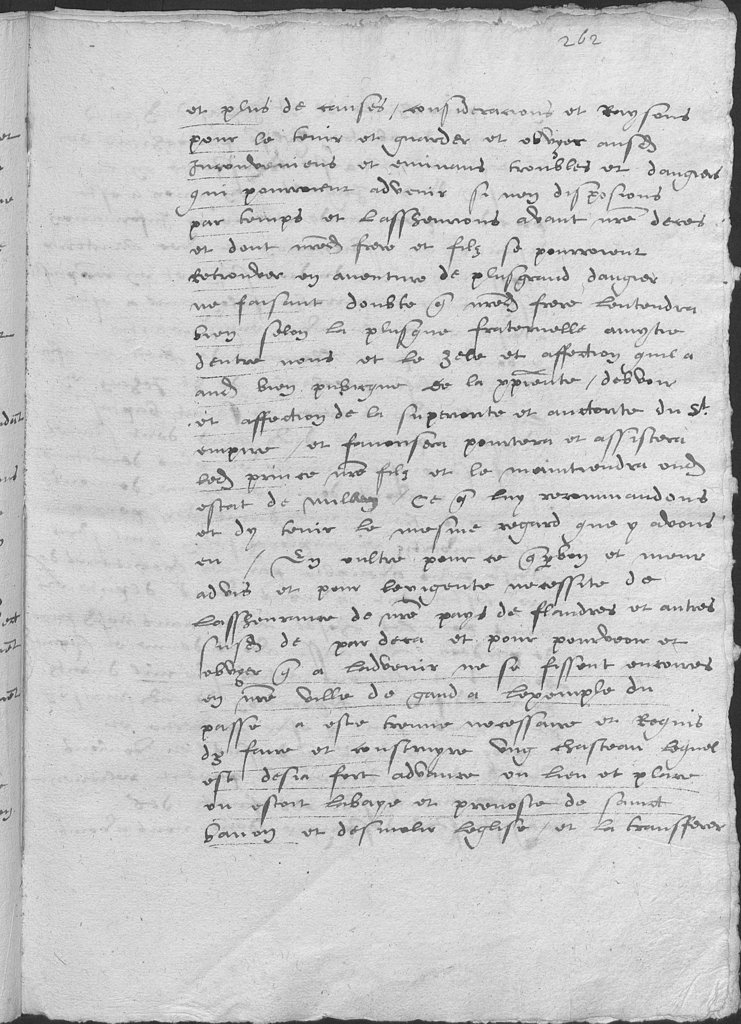 262
et plus de causes / consideracions et Raysons
pour le tenir et guarder et obvyer ausd
Inconveniens et eminans troubles et dangiers
qui pourroient advenir si nen disposions
par temps et lassheurions avant nre deces
et dont nred frere et filz se pourroient
Retrouver en aventure de plusgrand dangier
ne faisant doubte q nred frere lentendra
bien selon la plusque fraternelle amytie
dentre nous et le zele et affection quil a
aud bien publicque de la xpiente / debvoir
et affection de la superiorite et auctorite du St
empire / et favorisera pourtera et assistera
led prince nre filz et le maintiendra oud
estat de millan / Ce q luy recommandons
et dy tenir le mesme regard que y avons
eu / En oultre pour ce q par bon et meur
advis et pour levigente necessite de
lassheurance de nre pays de flandres et autres
susd de par deca et pour pourveoir et
obvyer q a ladvenir ne se fissent encoires
en nre ville de gand a lexemple du
passe a este trouve necessaire et Requis
dy faire et construyre ung chasteau lequel
est desia fort advance en lieu et place
ou estoit labaye et prevoste de sainct
bavon et desmolir leglise / et la transferer